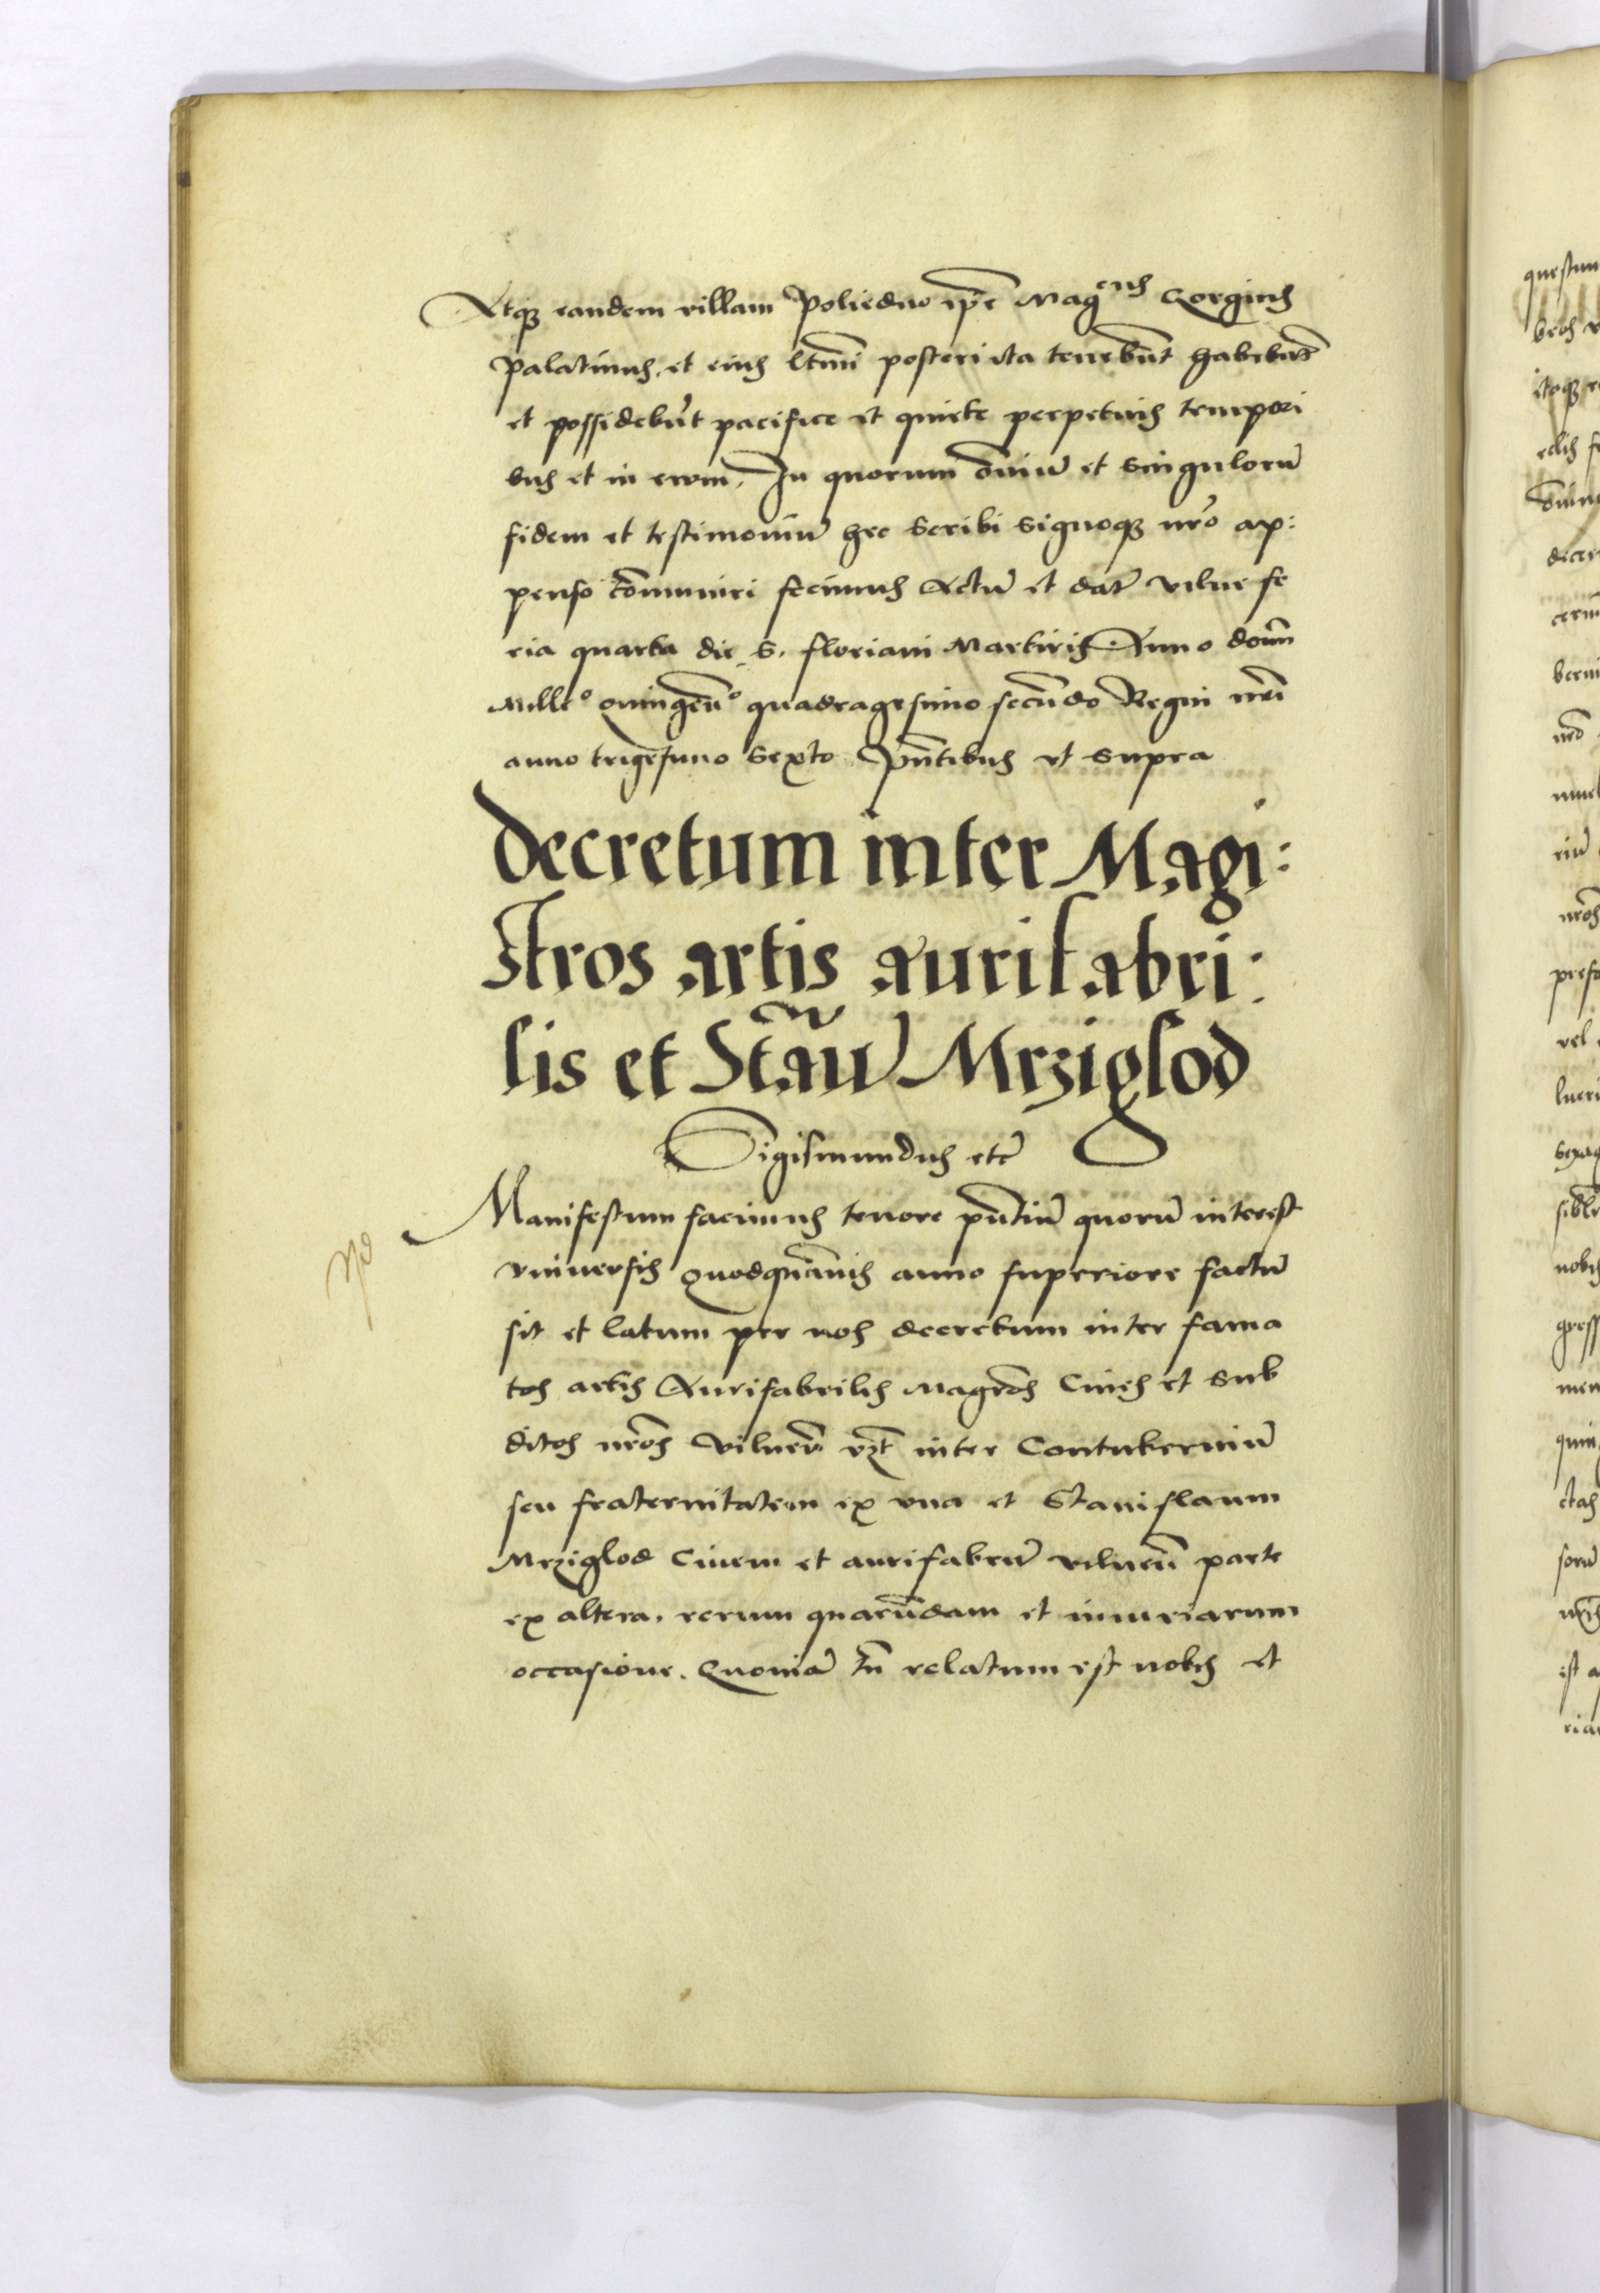 Atq3 eandem villam Poliedno ip̃e Magcus Georgius
Palatinus. et eius l̃timi posteri ita tenebunt habebũt
et possidebũt pacifice et quiete perpetuis tempori
bus et in evum. In quorum õmiũ et singulorũ
fidem et testimoniũ hec scribi signoq3 nr̃o ap:
penso cõmuniri fecimus Actũ et dat̃ Vilne fe
ria quarta die S. floriani Martiris Anno domĩ
Mille° quingeñ° quadragesimo secũdo Regni nr̃i
anno trigesimo sexto Pñtibus ut supra
Decretum inter Magi:
stros artis aurifabri:
lis et Stãn Mrziglod
Sigismundus etc̃
Manifestum facimus tenore pñtiũ quorũ interest
vniversis Quodquãvis anno superiore factũ
sit et latum per nos decretum inter fama
tos artis Aurifabrilis magr̃os Cives et sub
ditos nr̃os Vilneñ vz̃t inter Contuberniũ
seu fraternitatem ex vna et Stanislaum
Mrziglod Civem et aurifabrũ vilneñ parte
ex altera. rerum quarũdam et iniuriarum
occasione. Quoniã tñ relatum est nobis et